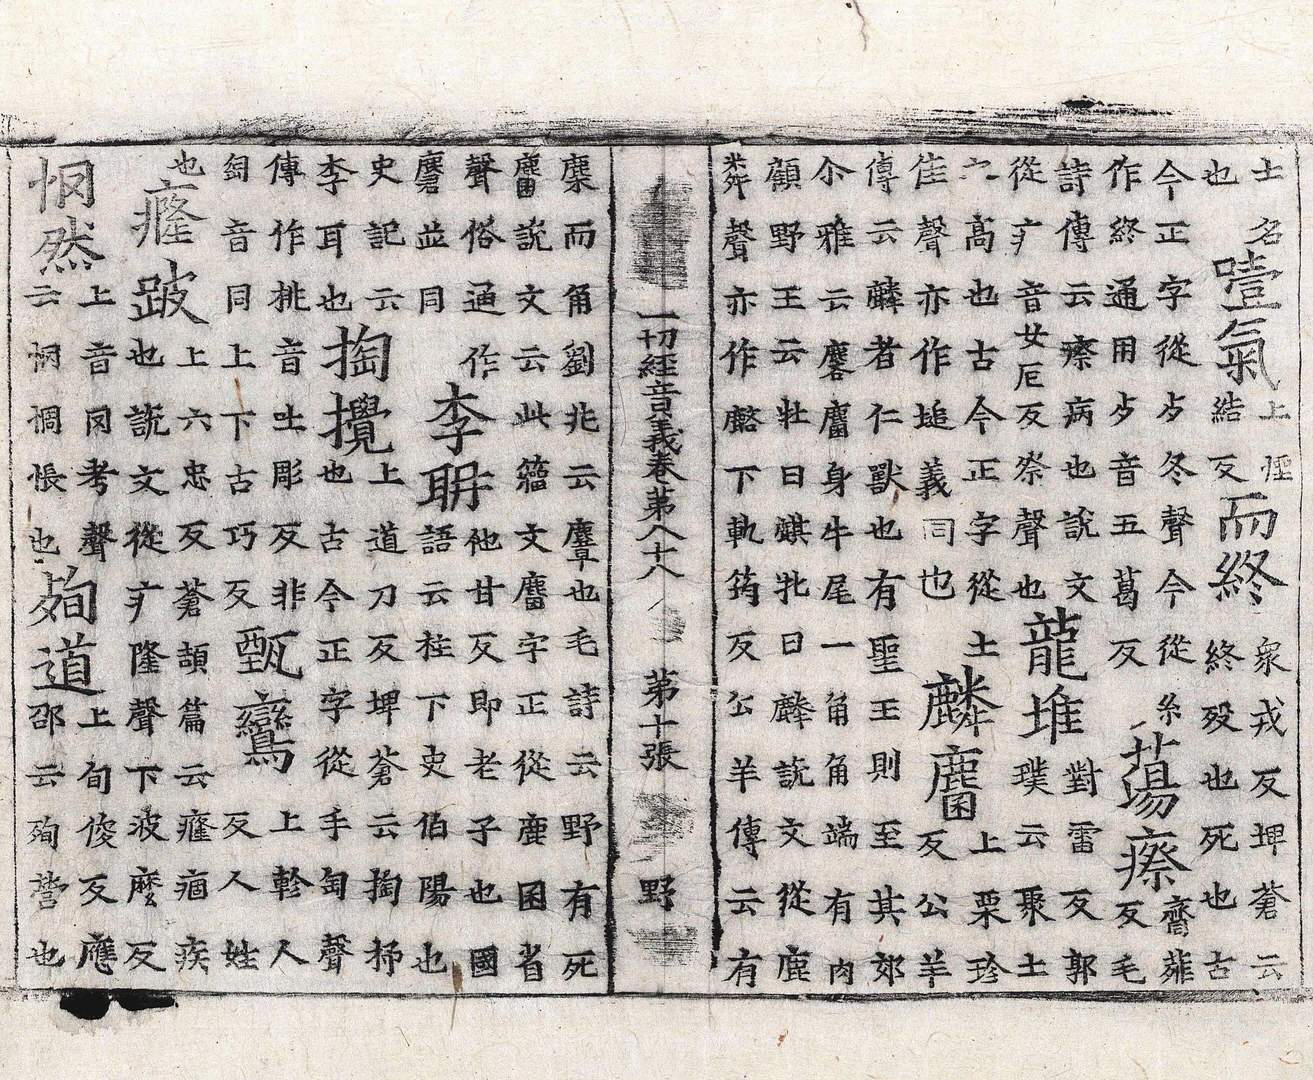 士名也噎氣上煙結反而終衆戎反埤蒼云終歿也死也古
今正字從歺冬聲今從糸作終通用歺音五葛反蕩瘵齋薤反毛
詩傳云瘵病也說文從疒音女厄反祭聲也龍堆對雷反郭璞云聚土
高也古今正字從土隹聲亦作塠義同也麟麕上栗珍反公羊
傳云麟者仁獸也有聖王則至其郊尒雅云麐麕身牛尾一角角端有肉
顧野王云牡曰麒牝曰麟說文從鹿粦聲亦作麐下軌筠反公羊傳云有
一切經音義卷第八十八 第十張 野
麇而角劉兆云麞也毛詩云野有死麕說文云此籀文麕字正從鹿囷省
聲俗通作麏並同李耼他甘反即老子也國語云柱下史伯陽也
史記云李耳也掏攪上道刀反埤蒼云掏抒也古今正字從手匋聲
傳作挑音土彫反非匋音同上下古巧反甄鸞上軫人反人姓
也癃跛上六忠反蒼頡篇云癃痼疾也說文從疒隆聲下波麽反
惘然上音罔考聲云惘惆悵也殉道上旬俊反應邵云殉營也